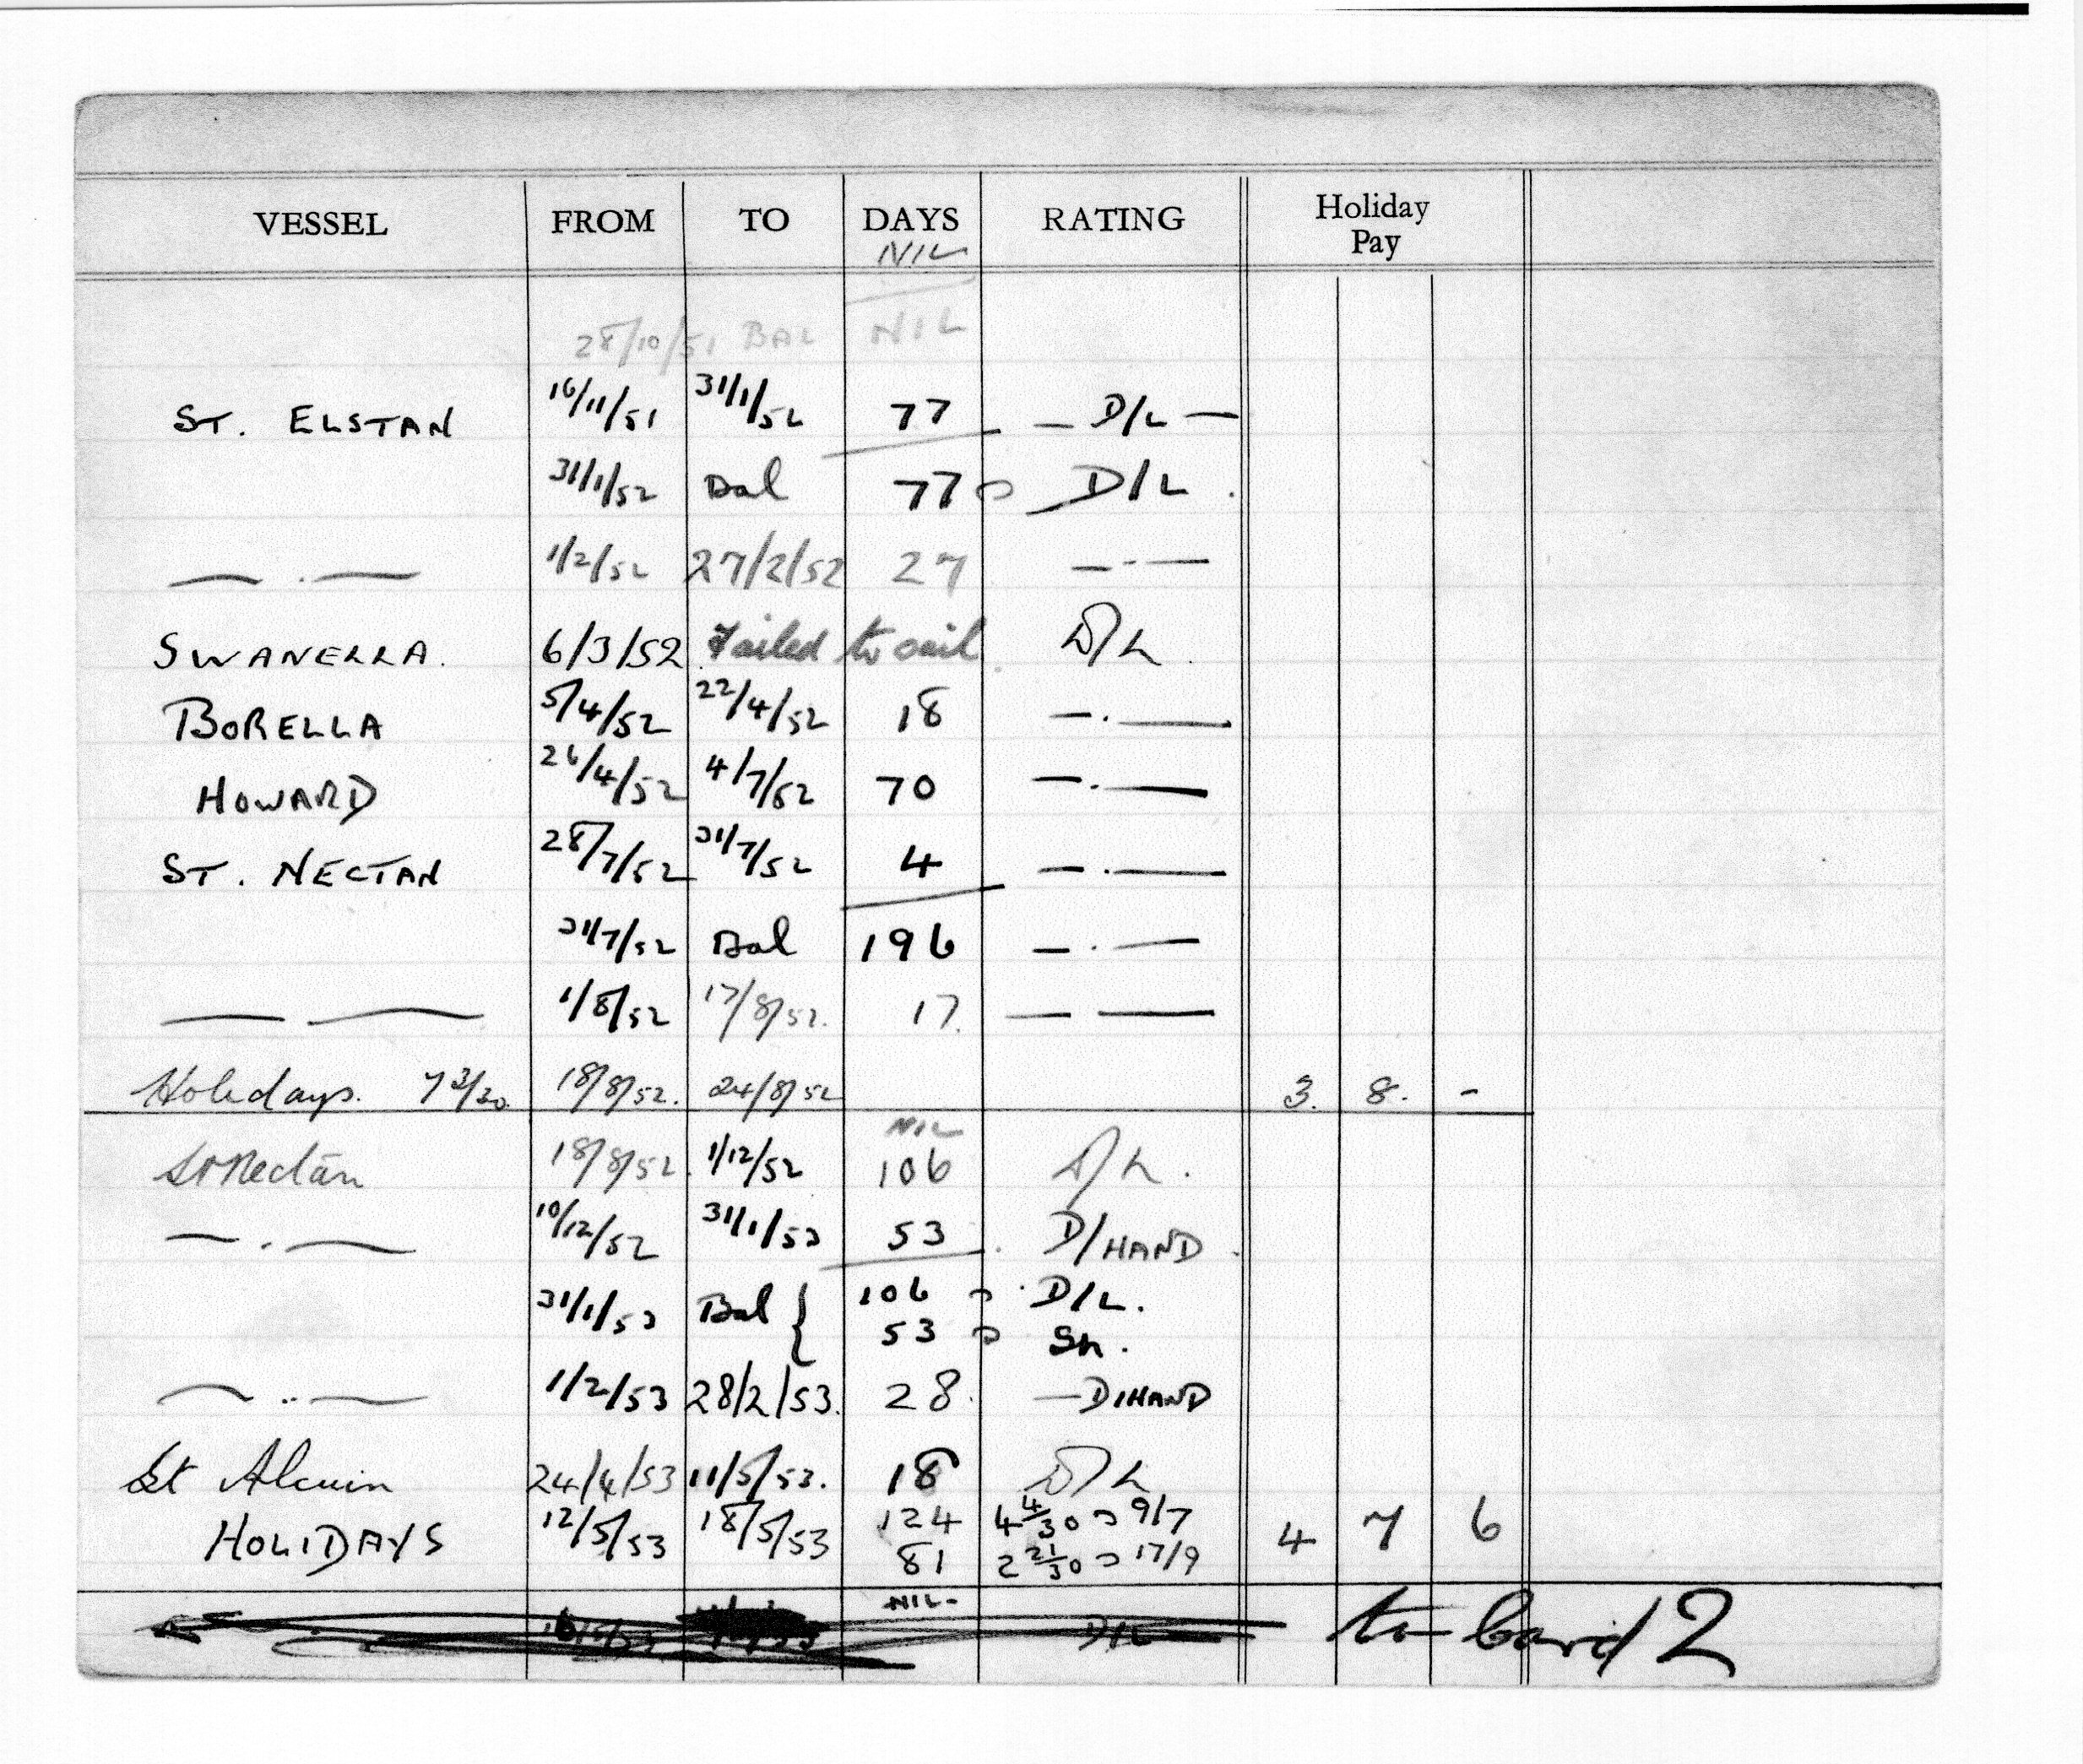 VESSEL FROM TO DAYS RATING Holiday Pay
NIL
28/10/51 BAL NIL
ST. ELSTAN 16/11/51 31/1/52 77 — D/L —
31/1/52 Bal 77 D/L.
— . — 1/2/52 27/2/52 27 — . —
SWANELLA. 6/3/52 Failed to sail D/L.
BORELLA 5/4/52 22/4/52 18 — . —
HOWARD 26/4/52 4/7/52 70 — . —
ST. NECTAN 28/7/52 31/7/52 4 — . —
31/7/52 Bal 196 — . —
— — 1/8/52 17/8/52. 17. — —
Holidays. 7 3/30 18/8/52. 24/8/52 3. 8. -
NIL
St Nectan 18/8/52. 1/12/52 106 D/L.
— . — 10/12/52 31/1/53 53 D/HAND.
31/1/53 Bal { 106 D/L.
53
— .. — 1/2/53 28/2/53. 28. — D/HAND
St Alcuin 24/4/53 11/5/53. 18 D/L
HOLIDAYS 12/5/53 18/5/53 124 4 4/30 9/7 4 7 6
81 2 21/30 17/9
NIL-
D/L to card 2